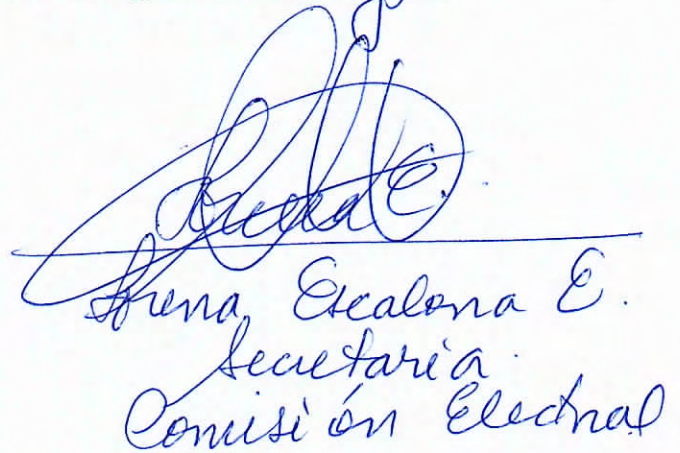 Lorena E.
Lorena Escalona E.
Secretaria
Comisión Electoral